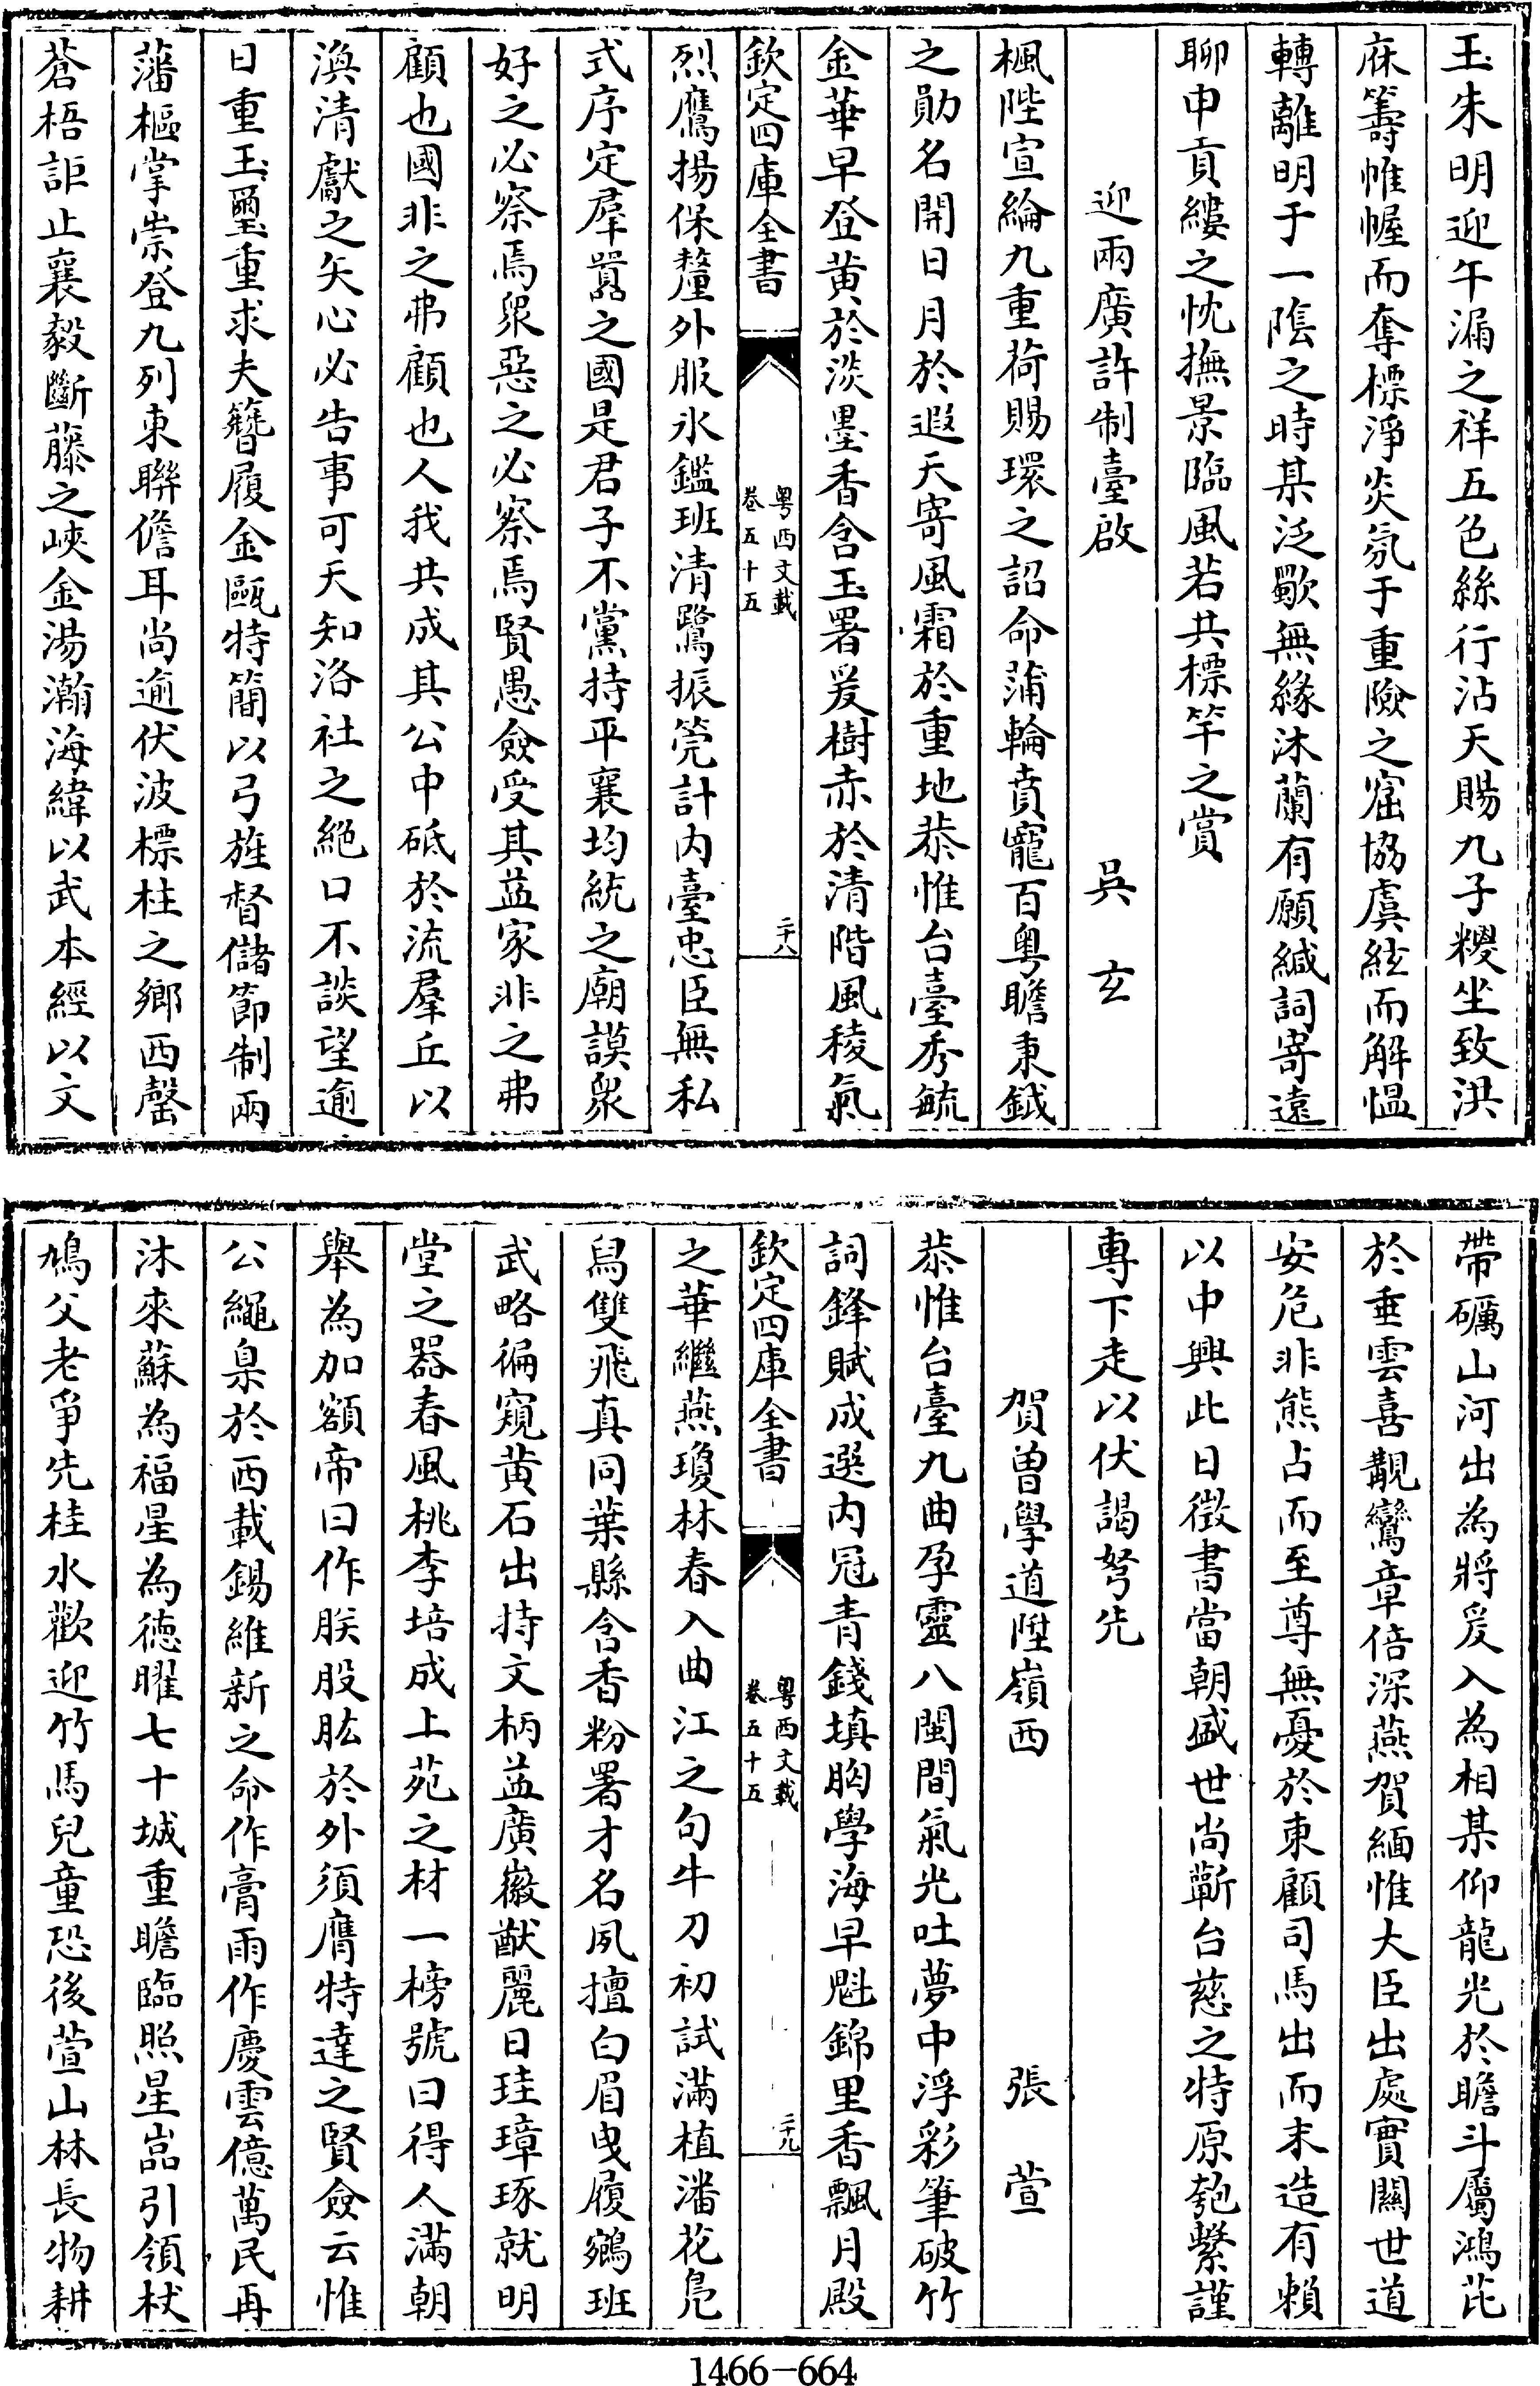 玉朱明迎午漏之祥五色絲行沾天賜九子糉坐致洪
庥籌帷幄而奪標淨炎氛于重險之窟協虞絃而解慍
轉離明于一陰之時某泛歜無緣沐蘭有願緘詞寄遠
聊申貢縷之忱撫景臨風若共標竿之賞
迎兩廣許制臺啟　吳玄
楓陛宣綸九重荷賜環之詔命蒲輪賁寵百粤瞻秉鉞
之勛名開日月於遐天寄風霜於重地恭惟台臺秀毓
金華早登黄於淡墨香含玉署爰樹赤於清階風稜氣
欽定四庫全書
粤西文載
卷五十五
二十八
烈鷹揚保釐外服氷鑑班清鷺振筦計内臺忠臣無私
式序定羣囂之國是君子不黨持平襄均統之廟謨衆
好之必察焉衆惡之必察焉賢愚僉受其益家非之弗
顧也國非之弗顧也人我共成其公中砥於流羣丘以
渙清獻之矢心必告事可天知洛社之絕口不談望逾
日重玉璽重求夫簪履金甌特簡以弓旌督儲節制兩
藩樞掌崇登九列東聯儋耳尚逾伏波標柱之鄉西罄
蒼梧詎止襄毅斷藤之峽金湯瀚海緯以武本經以文
帶礪山河出為將爰入為相某仰龍光於瞻斗屬鴻芘
於垂雲喜覯鸞章倍深燕賀緬惟大臣出處實關世道
安危非熊占而至尊無憂於東顧司馬出而末造有賴
以中興此日徵書當朝盛世尚蘄台慈之特原匏繫謹
專下走以伏謁弩先
賀曾學道陞嶺西　張萱
恭惟台臺九曲孕靈八閩間氣光吐夢中浮彩筆破竹
詞鋒賦成選内冠青錢填胸學海早魁錦里香飄月殿
欽定四庫全書
粤西文載
卷五十五
二十九
之華繼燕瓊林春入曲江之句牛刀初試滿植潘花鳬
舄雙飛真同葉縣含香粉署才名夙擅白眉曳履鵷班
武略徧窺黄石出持文柄益廣徽猷麗日珪璋琢就明
堂之器春風桃李培成上苑之材一榜號曰得人滿朝
舉為加額帝曰作朕股肱於外須膺特達之賢僉云惟
公繩臬於西載錫維新之命作膏雨作慶雲億萬民再
沐來蘇為福星為德曜七十城重瞻臨照星嵓引領杖
鳩父老爭先桂水歡迎竹馬兒童恐後萱山林長物耕
1466-664